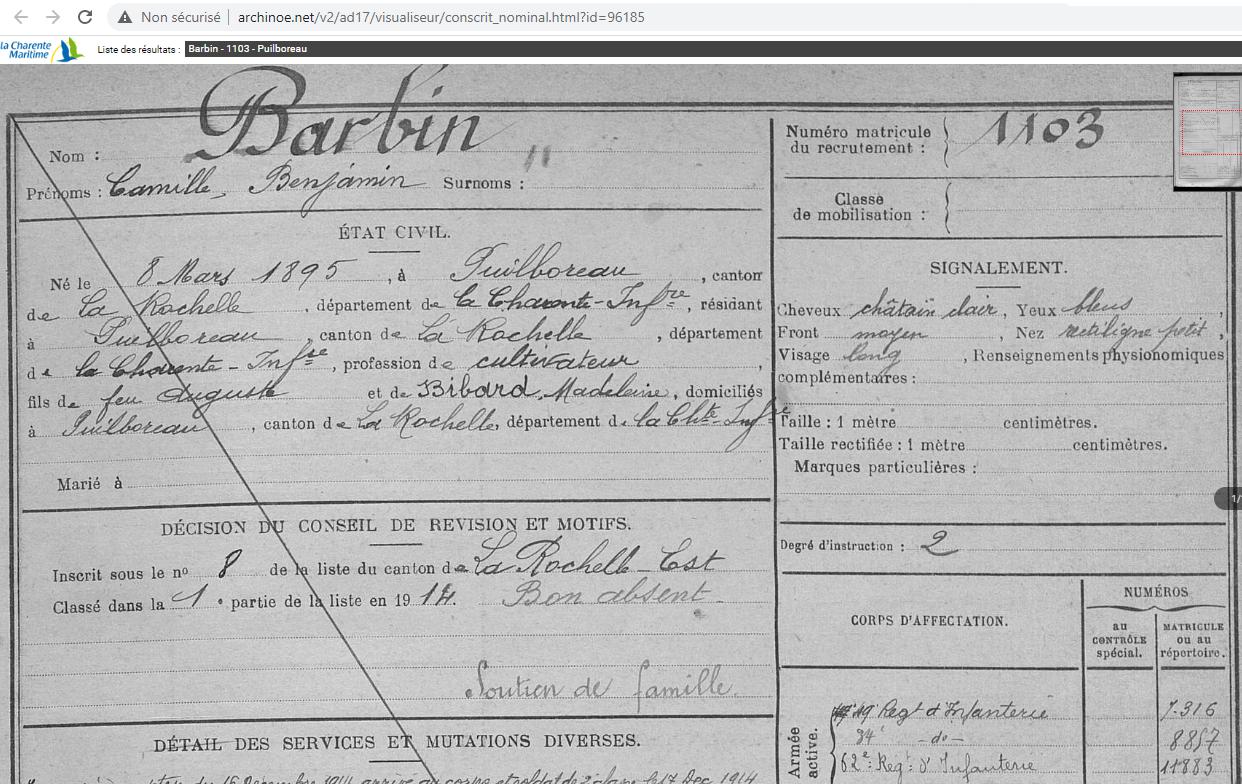 Non sécurisé | archinoe.net/v2/ad17/visualiseur/conscrit_nominal.html?id=96185
la Charente Maritime
Liste des résultats : Barbin - 1103 - Puilboreau
Nom : Barbin
Prénoms : Camille, Benjamin Surnoms :
ÉTAT CIVIL.
Né le 8 Mars 1895, à Puilboreau, canton
de La Rochelle, département de la Charente-Infre, résidant
à Puilboreau, canton de La Rochelle, département
de la Charente-Infre, profession de cultivateur,
fils de feu Auguste et de Bibard, Madeleine, domiciliés
à Puilboreau, canton de La Rochelle, département de la Chte Infre
Marié à
DÉCISION DU CONSEIL DE REVISION ET MOTIFS.
Inscrit sous le no 8 de la liste du canton de La Rochelle-Est
Classé dans la 1e partie de la liste en 1914. Bon absent
Soutien de famille.
DÉTAIL DES SERVICES ET MUTATIONS DIVERSES.
15 Décembre 1914, arrivé au corps et soldat de 2e classe le 17 Dec 1914
Numéro matricule du recrutement : 1103
Classe de mobilisation :
SIGNALEMENT.
Cheveux châtain clair, Yeux bleus,
Front moyen, Nez rectiligne petit,
Visage long, Renseignements physionomiques
complémentaires :
Taille : 1 mètre centimètres.
Taille rectifiée : 1 mètre centimètres.
Marques particulières :
Degré d'instruction : 2
CORPS D'AFFECTATION.
NUMÉROS
au CONTRÔLE spécial.
MATRICULE ou au répertoire.
Armée active.
Regt d'Infanterie 7.316
34e -do- 8857
62e Regt d'Infanterie 11883
1/